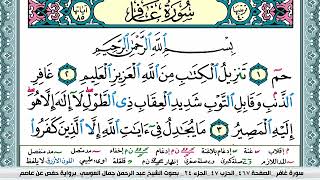 سُورَةُ غَافِرٍ
ترتيبها ٤٠
آياتها ٨٥
بِسْمِ اللَّهِ الرَّحْمَٰنِ الرَّحِيمِ
حمٓ ١ تَنزِيلُ الْكِتَٰبِ مِنَ اللَّهِ الْعَزِيزِ الْعَلِيمِ ٢ غَافِرِ
الذَّنۢبِ وَقَابِلِ التَّوْبِ شَدِيدِ الْعِقَابِ ذِى الطَّوْلِ لَآ إِلَٰهَ إِلَّا هُوَ
إِلَيْهِ الْمَصِيرُ ٣ مَا يُجَٰدِلُ فِىٓ ءَايَٰتِ اللَّهِ إِلَّا الَّذِينَ كَفَرُوا۟
سورة غافر - الصفحة ٤٦٧ - الجزء ٢٤ - بصوت الشيخ عبد الرحمن جمال العوسي - برواية حفص عن عاصم